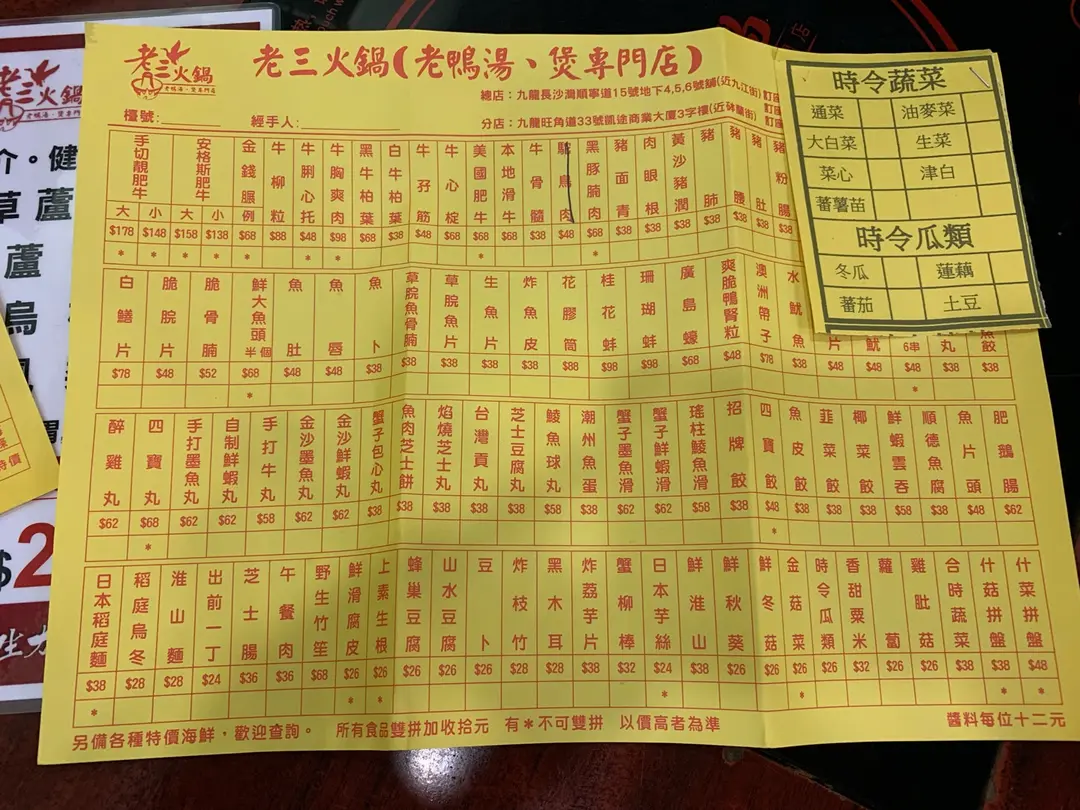 老三火鍋
老鴨湯、煲專門店
老三火鍋(老鴨湯、煲專門店)
總店：九龍長沙灣順寧道15號地下4,5,6號舖(近九江街) 訂座
分店：九龍旺角道33號凱途商業大廈3字樓(近砵蘭街) 訂座
檯號: 經手人:
手切靚肥牛 大 $178 * 小 $148 *
安格斯肥牛 大 $158 * 小 $138 *
金錢𦟌 例 $68 *
牛柳粒 $88
牛脷心托 $48 *
牛胸爽肉 $98 *
黑牛柏葉 $68
白牛柏葉 $38
牛孖筋 $48
牛心椗 $68
美國肥牛 $68 *
本地滑牛 $68
牛骨髓 $38
鴕鳥肉 $48
黑豚腩肉 $68 *
豬面青 $38
肉眼根 $38
黃沙豬潤 $38
豬肺 $38
豬腰 $38
豬肚 $38
豬粉腸 $38
白鱔片 $78
脆脘片 $48
脆骨腩 $52
鮮大魚頭 半個 $68 *
魚肚 $48
魚唇 $48
魚卜 $38
草脘魚骨腩 $38
草脘魚片 $38
生魚片 $38
炸魚皮 $38
花膠筒 $88
桂花蚌 $98
珊瑚蚌 $98
廣島蠔 $68
爽脆鴨腎粒 $48
澳洲帶子 $78
水魷魚 $38
片 $48
魷 $48
6串 $48 *
丸 $38
魚餃 $38
醉雞丸 $62
四寶丸 $68 *
手打墨魚丸 $62
自制鮮蝦丸 $62
手打牛丸 $58
金沙墨魚丸 $62
金沙鮮蝦丸 $62
蟹子包心丸 $38
魚肉芝士餅 $38
焰燒芝士丸 $38
台灣貢丸 $38
芝士豆腐丸 $38
鯪魚球丸 $58
潮州魚蛋 $38
蟹子墨魚滑 $62
蟹子鮮蝦滑 $62
瑤柱鯪魚滑 $58
招牌餃 $38
四寶餃 $48 *
魚皮餃 $38
韮菜餃 $38
椰菜餃 $38
鮮蝦雲吞 $58
順德魚腐 $38
魚片頭 $48
肥鵝腸 $62
日本稻庭麵 $38 *
稻庭烏冬 $28
淮山麵 $28
出前一丁 $24
芝士腸 $36
午餐肉 $36
野生竹笙 $68
鮮滑腐皮 $26 *
上素生根 $26 *
蜂巢豆腐 $26
山水豆腐 $26
豆卜 $26
炸枝竹 $28
黑木耳 $28
炸荔芋片 $38
蟹柳棒 $32
日本芋絲 $24 *
鮮淮山 $38
鮮秋葵 $26
鮮冬菇 $26
金菇菜 $26 *
時令瓜類 $26
香甜粟米 $32
蘿蔔 $26
雞肶菇 $26
合時蔬菜 $38
什菇拼盤 $38 *
什菜拼盤 $48 *
另備各種特價海鮮，歡迎查詢。 所有食品雙拼加收拾元 有*不可雙拼 以價高者為準
醬料每位十二元
時令蔬菜
通菜 油麥菜
大白菜 生菜
菜心 津白
蕃薯苗
時令瓜類
冬瓜 蓮藕
蕃茄 土豆